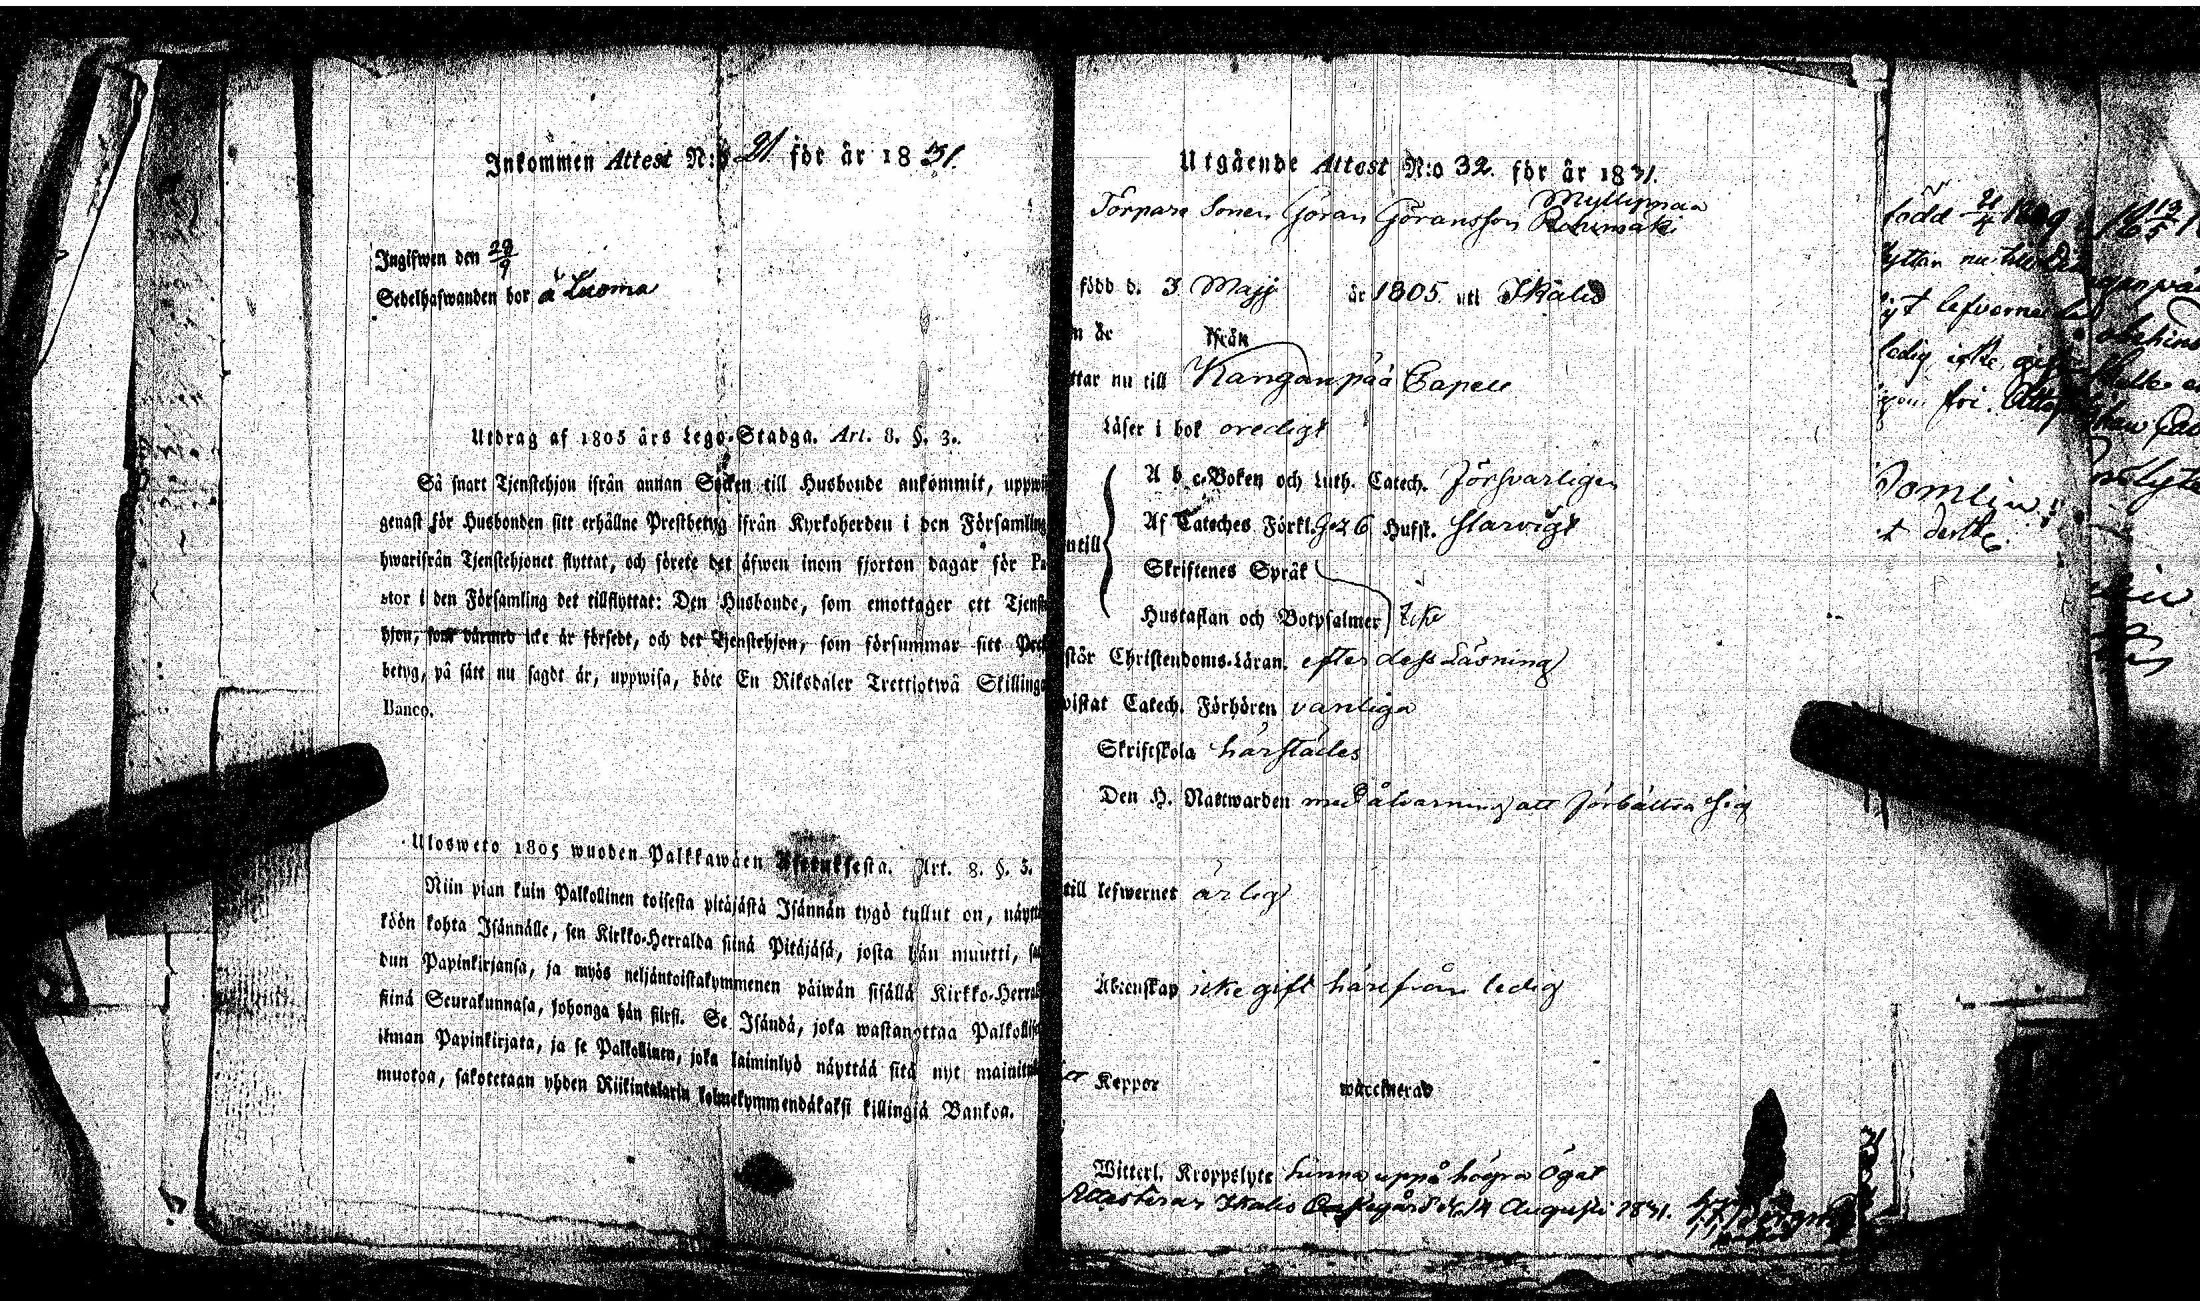 Inkommen Attest N:o 21 för år 1831.
Ingifwen den 28/9
Sedelhafwanden bor å Luoma
Utdrag af 1805 års Lego-Stadga. Art. 8. §. 3.
Så snart Tjenstehjon ifrån annan Socken till Husbonde ankommit, uppwi
genast för Husbonden sitt erhållne Prestbetyg ifrån Kyrkoherden i den Församling
hwarifrån Tjenstehjonet flyttat, och förete det äfwen inom fjorton dagar för Pa
stor i den Församling det tillflyttat: Den Husbonde, som emottager ett Tjenste
hjon, som därmed icke är försedt, och det Tjenstehjon, som försummar sitt Prest
betyg, på sätt nu sagdt är, uppwisa, böte En Riksdaler Trettiotwå Skillingar
Banco.
Ulosweto 1805 wuoden Palkkawäen Asetuksesta. Art. 8. §. 3.
Niin pian kuin Palkollinen toisesta pitäjästä Isännän tygö tullut on, näyttä
köön kohta Isännälle, sen Kirkko-Herralda siinä Pitäjäsä, josta hän muutti, sa
dun Papinkirjansa, ja myös neljäntoistakymmenen päiwän sisällä Kirkko-Herral
siinä Seurakunnasa, johonga hän siirsi. Se Isändä, joka wastanottaa Palkollisen
ilman Papinkirjata, ja se Palkollinen, joka laiminlyö näyttää sitä nyt mainitulla
muotoa, sakotetaan yhden Riikintalarin kolmekymmendäkaksi killingiä Bankoa.
Utgående Attest N:o 32. för år 1831.
Myllymaa
Torpare Sonen Göran Göransson Rahumäki
född d. 3 Majj år 1805 uti Ikalis
n är ifrån
ttar nu till Kanganpää Capell
Läser i bok oredigt
A b c-Boken och Luth. Catech. försvarligen
Af Cateches Förkl. 6 Hufst. slarvigt
ntill
Skriftenes Språk
Hustaflan och Botpsalmer icke
står Christendoms-Läran. efter dess Läsning
vistat Catech. Förhören vanliga
Skriftskola härstädes
Den H. Nattwarden med åtvarning att förbättra sig
till lefwernet ärlig
Äktenskap icke gift härifrån ledig
Koppor waccinerad
Witterl. Kroppslyte hinna uppå högra Ögat
Attesterar Ikalis Prestegård d. 14 Augusti 1831.
född